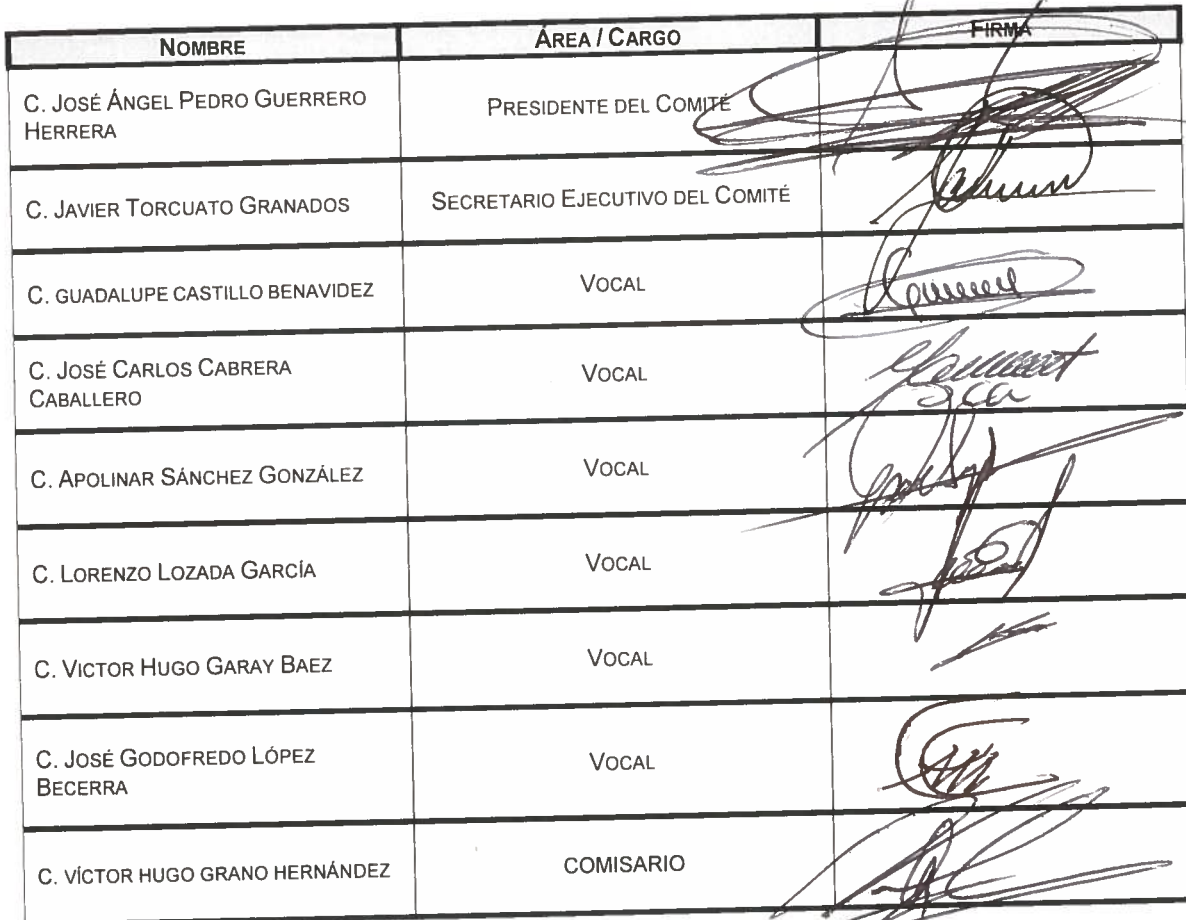 NOMBRE ÁREA / CARGO FIRMA
C. JOSÉ ÁNGEL PEDRO GUERRERO
HERRERA
PRESIDENTE DEL COMITÉ
C. JAVIER TORCUATO GRANADOS SECRETARIO EJECUTIVO DEL COMITÉ
C. GUADALUPE CASTILLO BENAVIDEZ VOCAL
C. JOSÉ CARLOS CABRERA
CABALLERO
VOCAL
C. APOLINAR SÁNCHEZ GONZÁLEZ VOCAL
C. LORENZO LOZADA GARCÍA VOCAL
C. VICTOR HUGO GARAY BAEZ VOCAL
C. JOSÉ GODOFREDO LÓPEZ
BECERRA
VOCAL
C. VÍCTOR HUGO GRANO HERNÁNDEZ COMISARIO